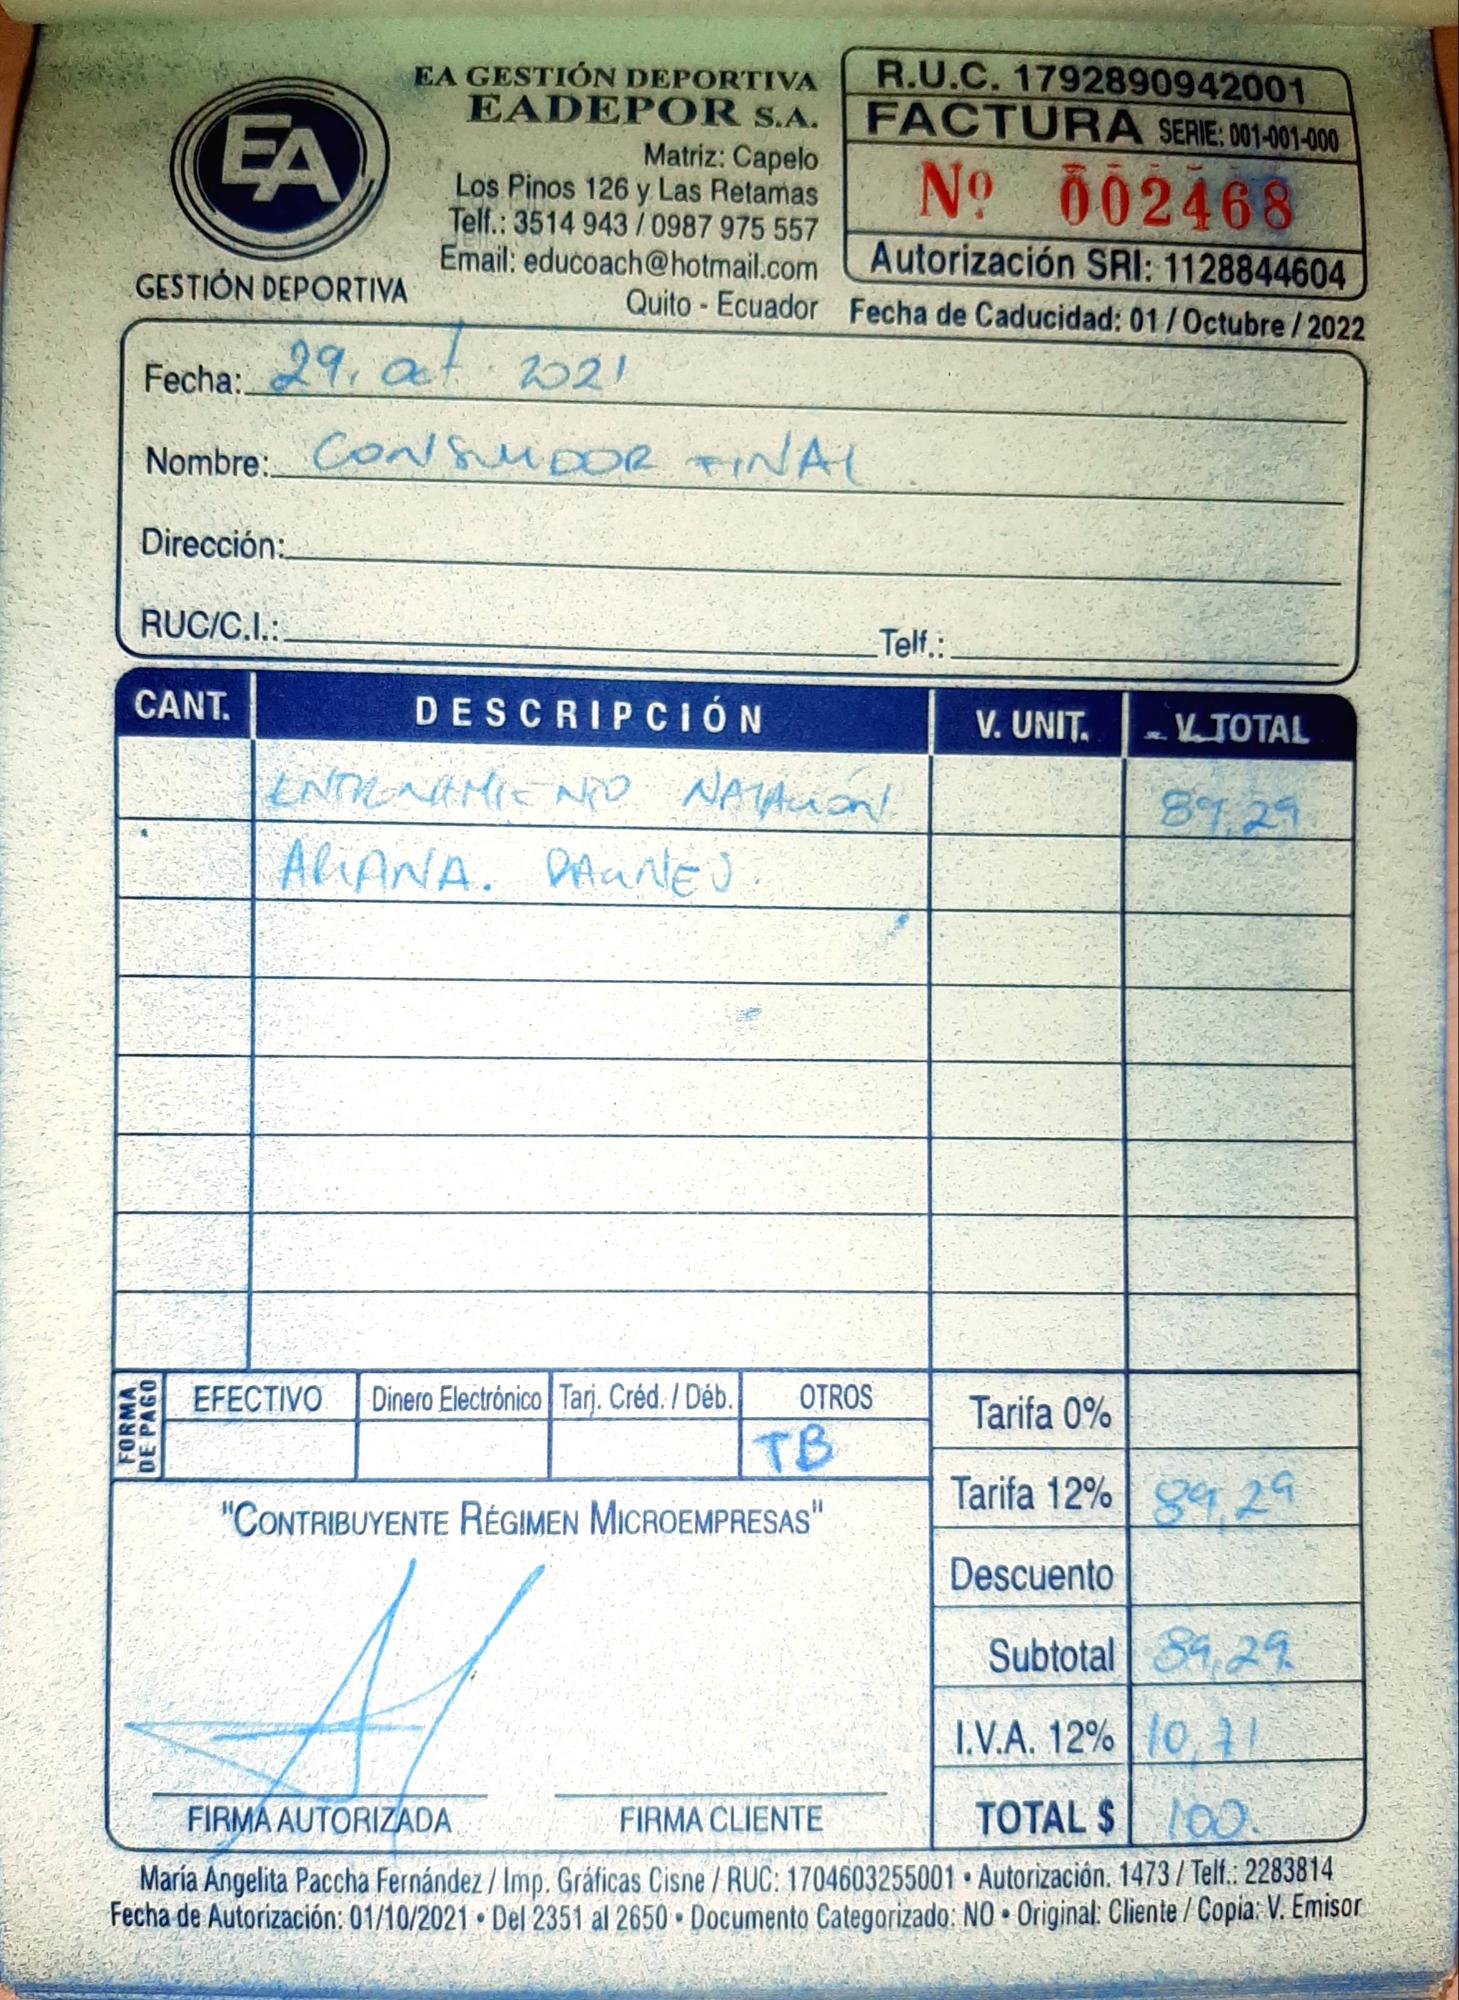 EA
GESTIÓN DEPORTIVA
EA GESTIÓN DEPORTIVA
EADEPOR S.A.
Matriz: Capelo
Los Pinos 126 y Las Retamas
Telf.: 3514 943 / 0987 975 557
Email: educoach@hotmail.com
Quito - Ecuador
R.U.C. 1792890942001
FACTURA SERIE: 001-001-000
Nº 002468
Autorización SRI: 1128844604
Fecha de Caducidad: 01 / Octubre / 2022
Fecha: 29. oct. 2021
Nombre: CONSUMIDOR FINAL
Dirección:
RUC/C.I.: Telf.:
CANT. DESCRIPCIÓN V. UNIT. V. TOTAL
ENTRENAMIENTO NATACIÓN 89,29
ARIANA.
FORMA DE PAGO EFECTIVO Dinero Electrónico Tarj. Créd. / Déb. OTROS
TB
Tarifa 0%
Tarifa 12% 89,29
Descuento
Subtotal 89,29
I.V.A. 12% 10,71
TOTAL $ 100.
"CONTRIBUYENTE RÉGIMEN MICROEMPRESAS"
FIRMA AUTORIZADA FIRMA CLIENTE
María Angelita Paccha Fernández / Imp. Gráficas Cisne / RUC: 1704603255001 • Autorización. 1473 / Telf.: 2283814
Fecha de Autorización: 01/10/2021 • Del 2351 al 2650 • Documento Categorizado: NO • Original: Cliente / Copia: V. Emisor